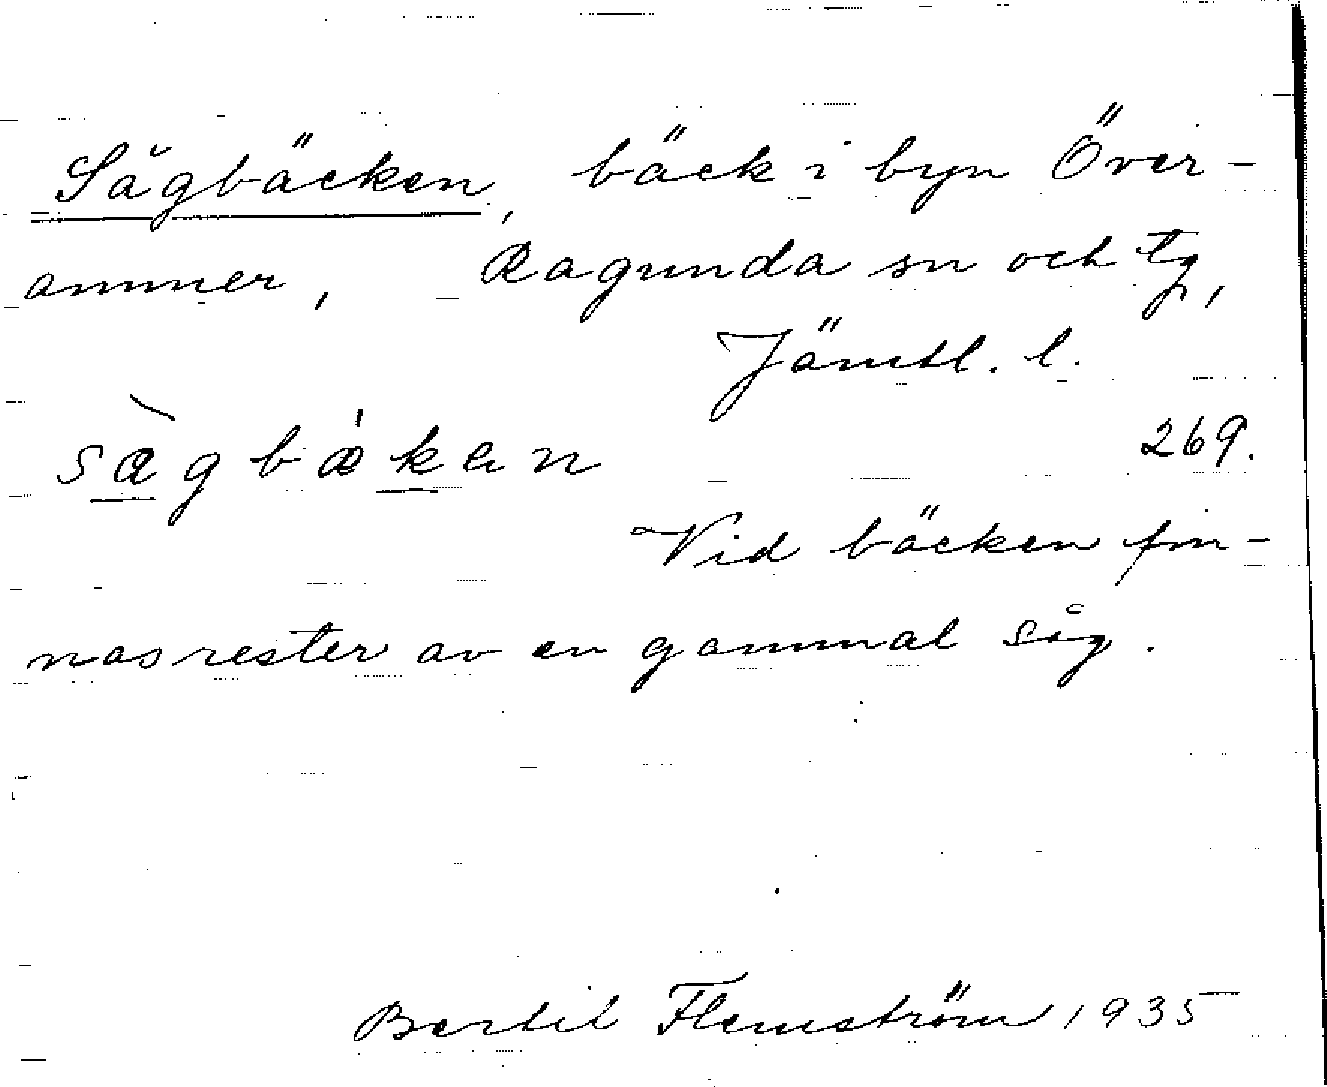 Sågbäcken, bäck i byn Över-
ammer, Ragunda sn och tg,
Jämtl. l.
sæ̀gbǽken
269.
Vid bäcken fin-
nas rester av en gammal såg.
Bertil Flemström 1935